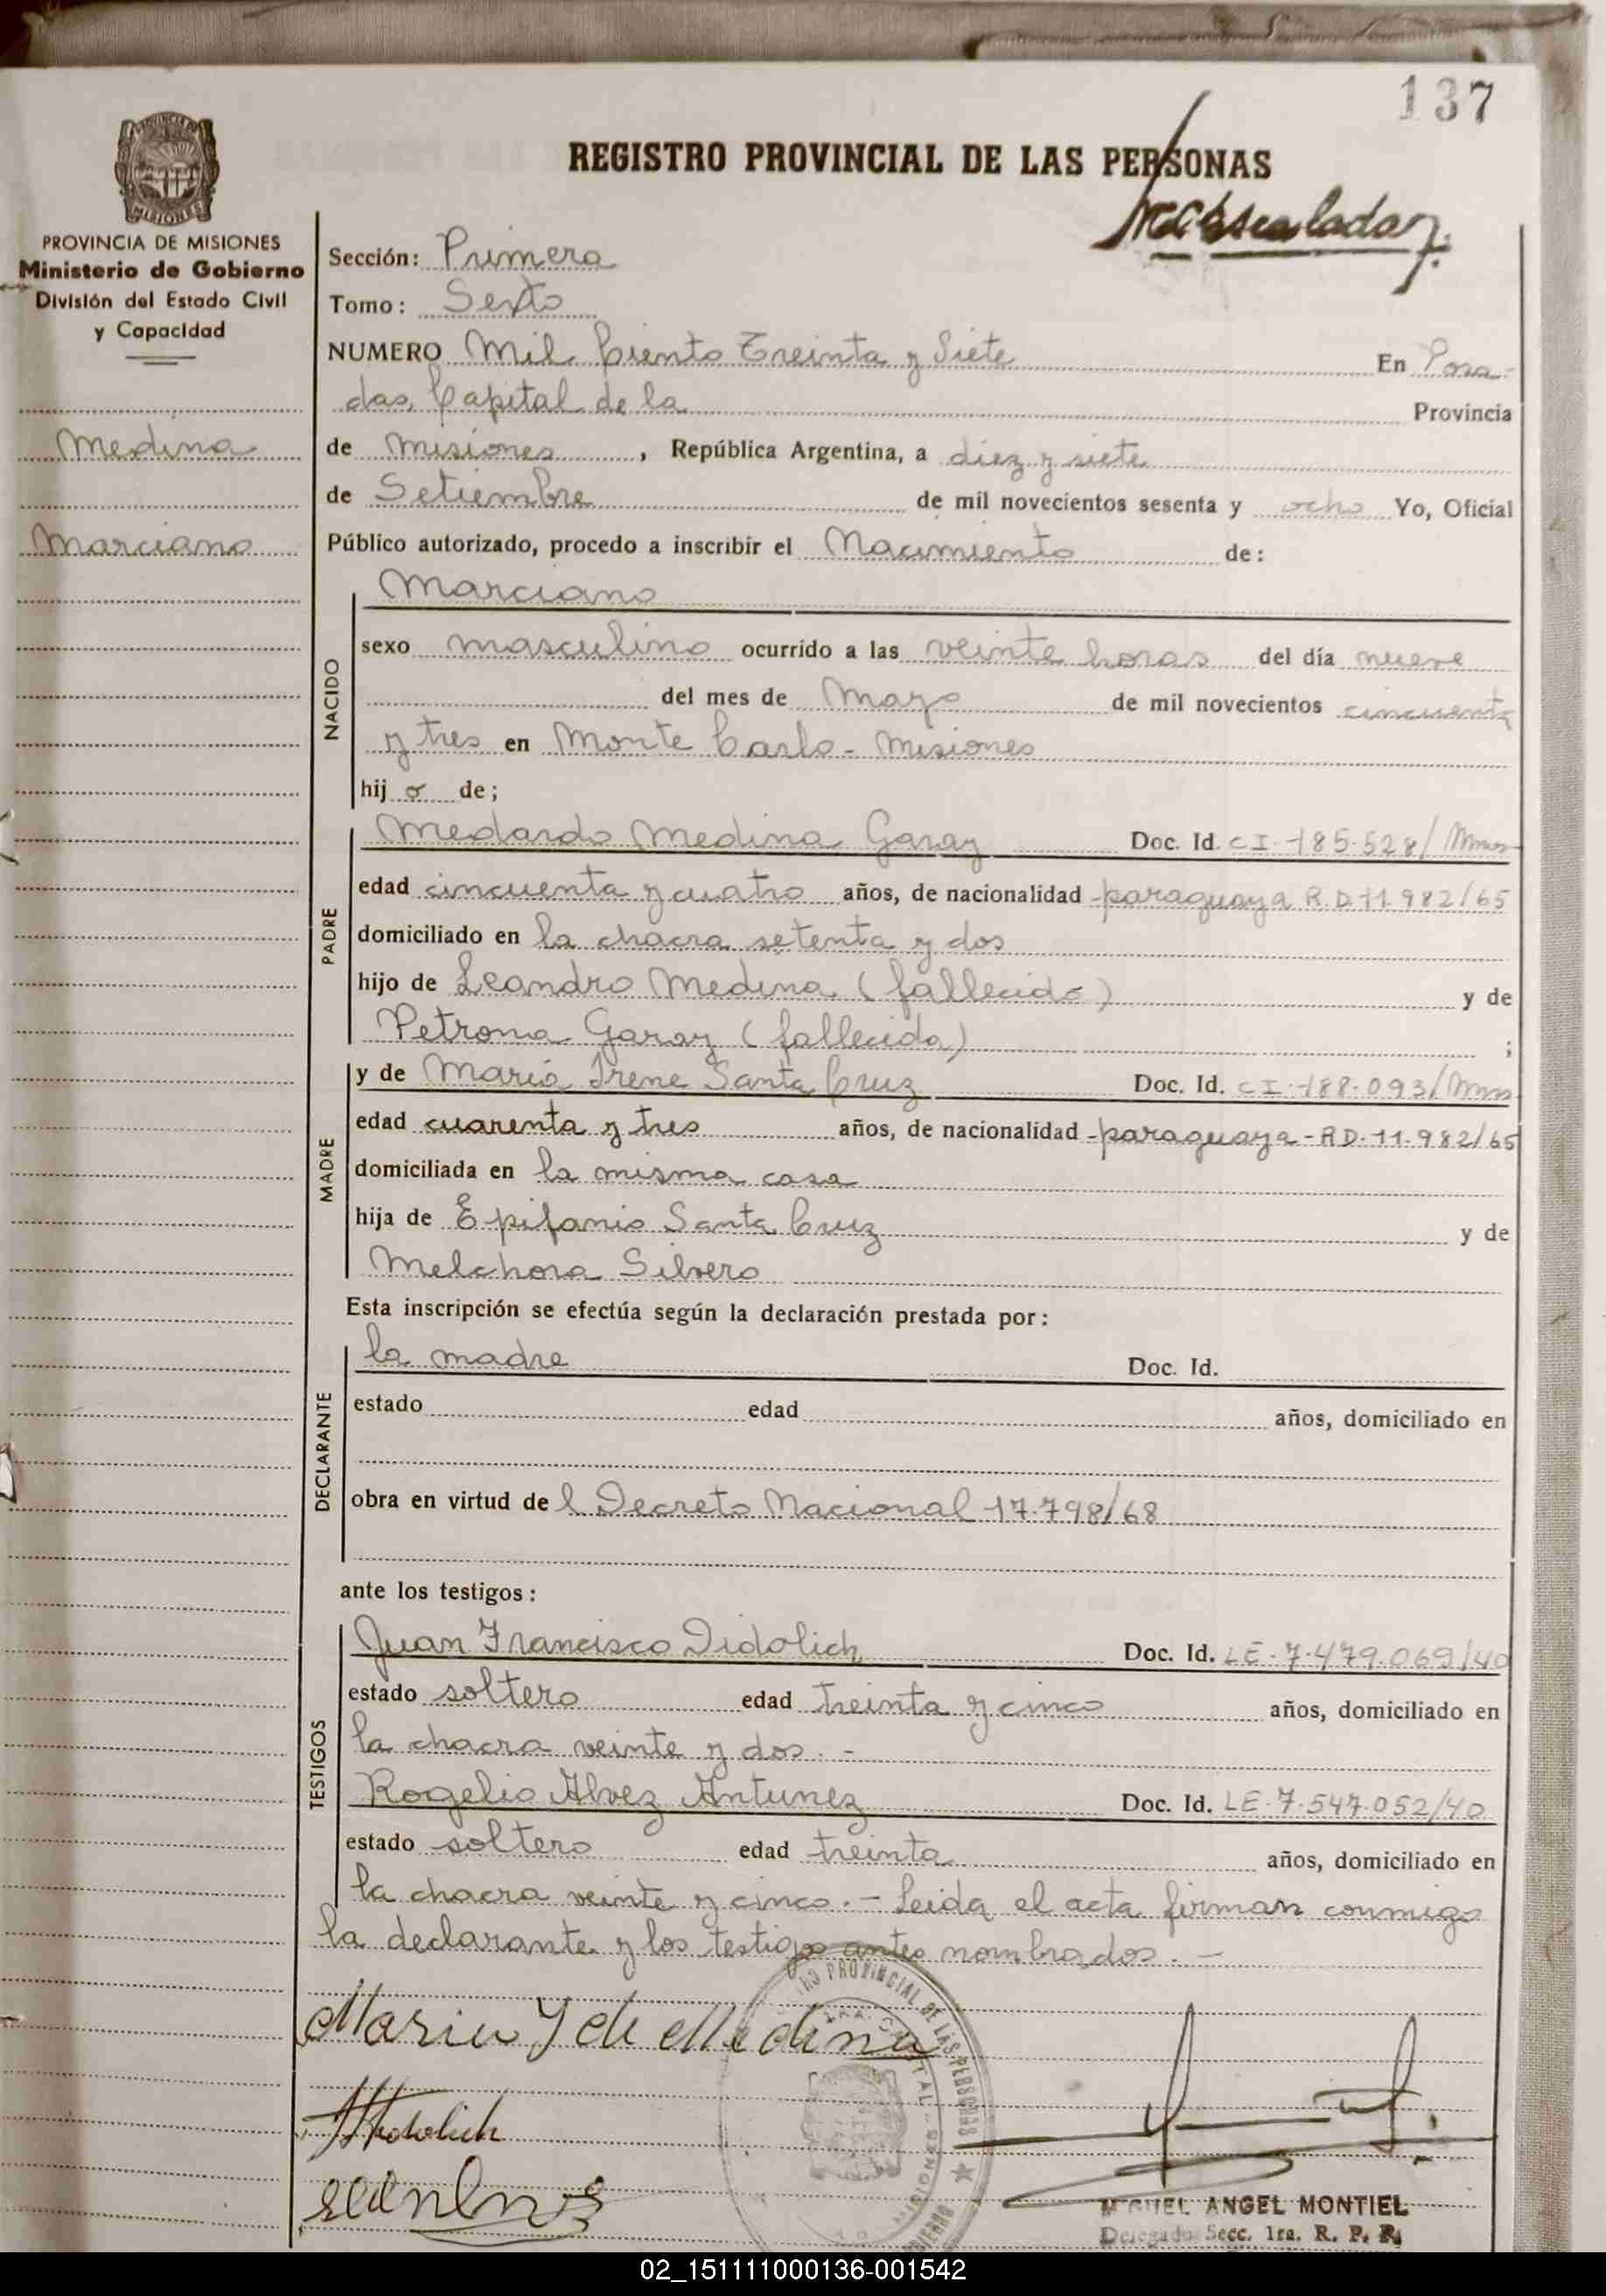 137
REGISTRO PROVINCIAL DE LAS PERSONAS
MISIONES
PROVINCIA DE MISIONES
Ministerio de Gobierno
División del Estado Civil
y Capacidad
Medina
Marciano
Sección: Primera
Tomo: Sexto
NUMERO Mil Ciento Treinta y Siete En Posa-
das, Capital de la Provincia
de Misiones, República Argentina, a diez y siete
de Setiembre de mil novecientos sesenta y ocho Yo, Oficial
Público autorizado, procedo a inscribir el Nacimiento de:
NACIDO
Marciano
sexo masculino ocurrido a las veinte horas del día nueve
del mes de Mayo de mil novecientos cincuenta
y tres en Monte Carlo - Misiones
hijo de;
PADRE
Medardo Medina Garay Doc. Id. C I - 185.528/Mnes
edad cincuenta y cuatro años, de nacionalidad paraguaya R.D. 11.982/65
domiciliado en la chacra setenta y dos
hijo de Leandro Medina (fallecido) y de
Petrona Garay (fallecida) ;
MADRE
y de María Irene Santa Cruz Doc. Id. C I - 188.093/Mnes
edad cuarenta y tres años, de nacionalidad paraguaya - R D. 11.982/65
domiciliada en la misma casa
hija de Epifanio Santa Cruz y de
Melchora Silvero
Esta inscripción se efectúa según la declaración prestada por:
DECLARANTE
la madre Doc. Id.
estado edad años, domiciliado en
obra en virtud del Decreto Nacional 17.798/68
ante los testigos:
TESTIGOS
Juan Francisco Didolich Doc. Id. LE. 7.479.069/40
estado soltero edad treinta y cinco años, domiciliado en
la chacra veinte y dos. -
Rogelio Alvez Antunez Doc. Id. LE. 7.547.052/40
estado soltero edad treinta años, domiciliado en
la chacra veinte y cinco. - Leida el acta firman conmigo
la declarante y los testigos antes nombrados. -
PROVINCIAL DE LAS PERSONAS
Maria Y de Medina
MIGUEL ANGEL MONTIEL
Delegado Secc. 1ra. R. P. P.
02_151111000136-001542